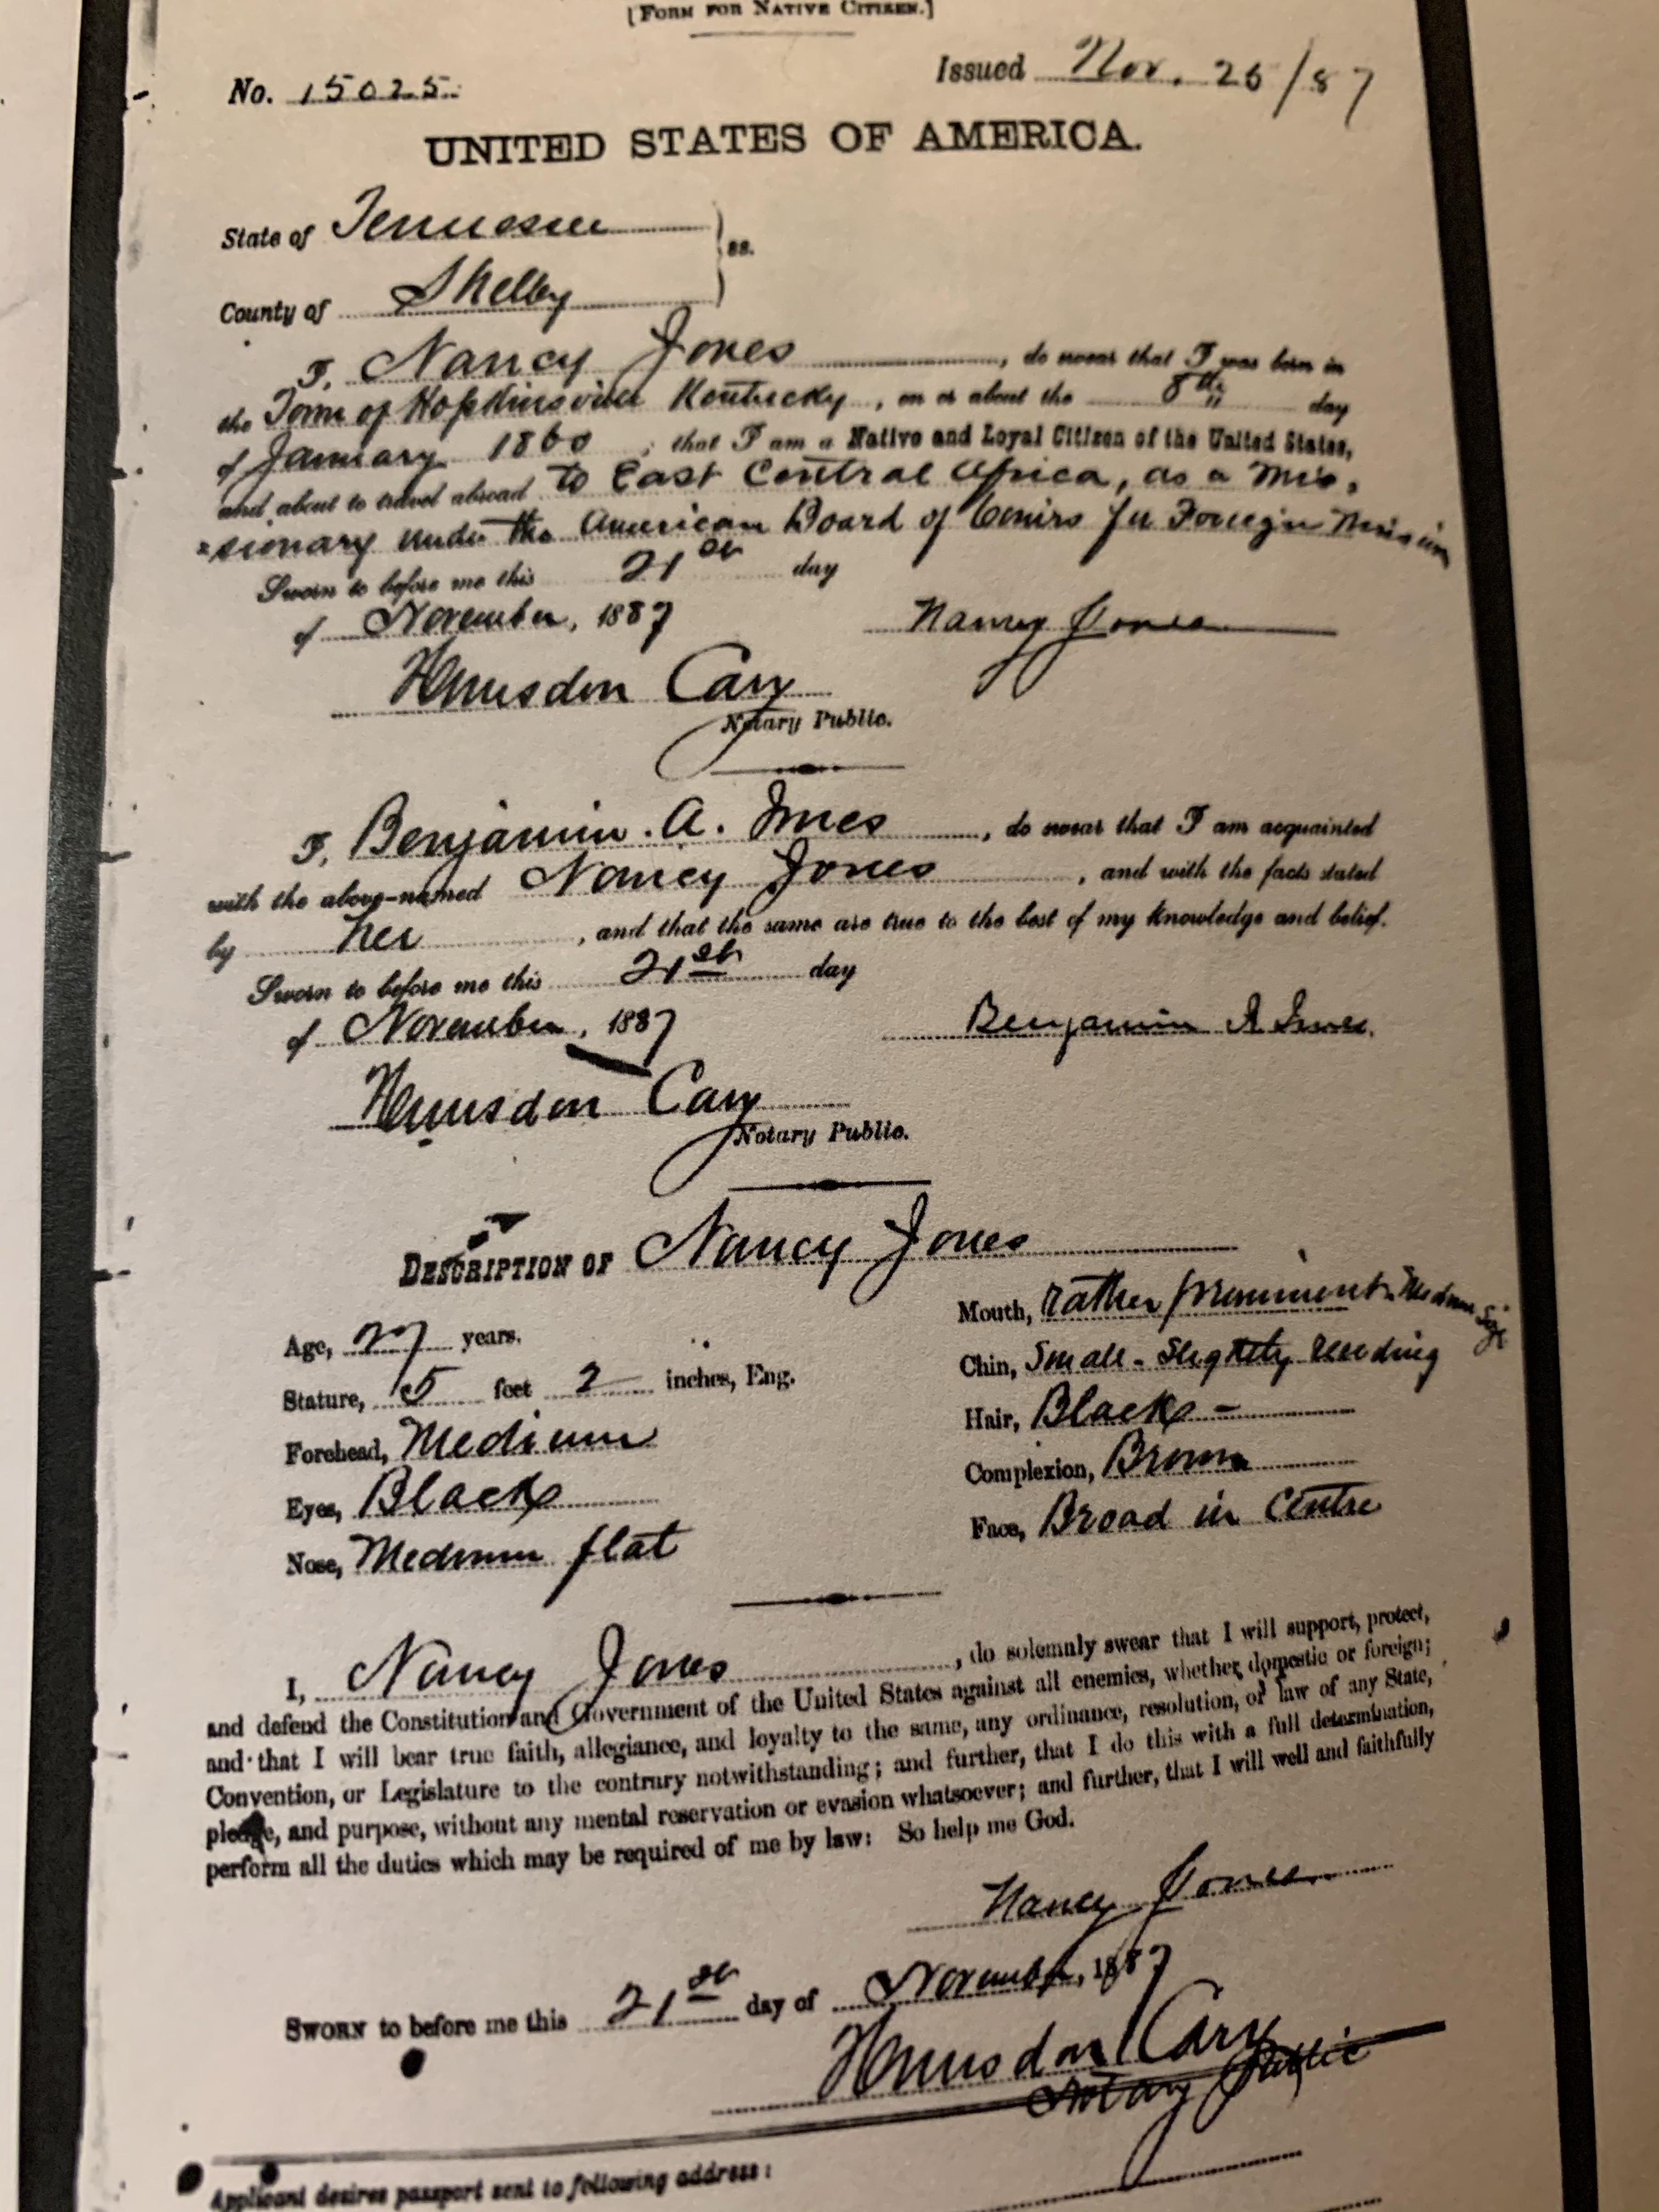 [FORM FOR NATIVE CITIZEN.]
No. 15025. Issued Nov. 26/87
UNITED STATES OF AMERICA.
State of Tennessee
ss.
County of Shelby
I, Nancy Jones, do swear that I was born in
the Town of Hopkinsville Kentucky, on or about the 8th day
of January 1860; that I am a Native and Loyal Citizen of the United States,
and about to travel abroad to East Central Africa, as a Mis,
=sionary under the American Board of Comirs for Foreign Mission
Sworn to before me this 21st day
of November, 1887 Nancy Jones
Hunsdon Cary
Notary Public.
I, Benjamin. A. Imes, do swear that I am acquainted
with the above-named Nancy Jones, and with the facts stated
by her, and that the same are true to the best of my knowledge and belief.
Sworn to before me this 21st day
of November, 1887 Benjamin A Imes.
Hunsdon Cary
Notary Public.
DESCRIPTION OF Nancy Jones
Age, 27 years.
Stature, 5 feet 2 inches, Eng.
Forehead, Medium
Eyes, Black
Nose, Medium flat
Mouth, rather prominent. Medium Size
Chin, Small - Slightly receding
Hair, Black -
Complexion, Brown
Face, Broad in Centre
I, Nancy Jones, do solemnly swear that I will support, protect,
and defend the Constitution and Government of the United States against all enemies, whether domestic or foreign;
and that I will bear true faith, allegiance, and loyalty to the same, any ordinance, resolution, or law of any State,
Convention, or Legislature to the contrary notwithstanding; and further, that I do this with a full determination,
pledge, and purpose, without any mental reservation or evasion whatsoever; and further, that I will well and faithfully
perform all the duties which may be required of me by law: So help me God.
Nancy Jones
SWORN to before me this 21st day of November, 1887
Hunsdon Cary
Notary Public
Applicant desires passport sent to following address: